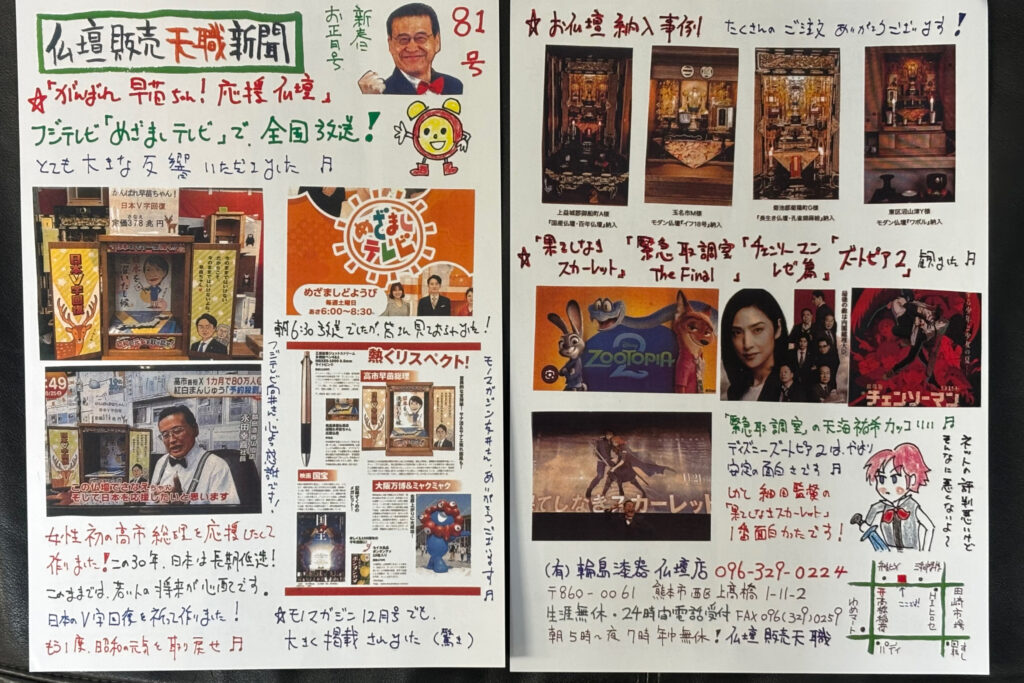 仏壇販売天職新聞
新春に
お正月号
81
号
☆「がんばれ早苗ちゃん!応援仏壇」
フジテレビ「めざましテレビ」で、全国放送!
とても大きな反響いただきました♬
がんばれ早苗ちゃん!
日本V字回復
定価378兆円
日本V字回復
めざまし
テレビ
めざましどようび
毎週土曜日
あさ6:00〜8:30
朝6:30放送でしたが、皆さん見ておられました!
:49
高市首相X 1カ月で80万人
紅白まんじゅう「予約殺到」
永田幸喜社長
この仏壇でさなえちゃん
そして日本を応援したいと思います
熱くリスペクト!
高市早苗総理
映画 国宝
国宝
大阪万博&ミャクミャク
女性初の高市総理を応援したくて
作りました!この30年、日本は長期低迷!
このままでは、若い人の将来が心配です。
日本のV字回復を祈って作りました!
もう1度、昭和の元気を取り戻せ♬
☆モノマガジン12月号でも、
大きく掲載されました(驚き)
☆お仏壇納入事例
たくさんのご注文ありがとうございます!
上益城郡御船町A様
『国産仏壇・百年仏壇』納入
玉名市M様
モダン仏壇『イフ18号』納入
菊池郡菊陽町G様
東区沼山津Y様
モダン仏壇『ワポル』納入
☆「果てしなき
スカーレット」
「緊急取調室
The Final」
「チェンソーマン
レゼ篇」
「ズートピア2」
観ました♬
ZOOTOPIA
2
チェンソーマン
果てしなきスカーレット
「緊急取調室」の天海祐希カッコいい!!
ディズニーズートピア2は、やはり
安定の面白さです♬
しかし細田監督の
「果てしなきスカーレット」
1番面白かったです!
ネットの評判悪いけど
そんなに悪くないよ〜
(有)輪島漆器仏壇店 096-329-0224
〒860-0061 熊本市西区上高橋1-11-2
生涯無休・24時間電話受付 FAX096(329)0259
朝5時〜夜7時年中無休!仏壇販売天職
ここだ!
ゆめマート
高橋稲荷
パディ
田崎市場